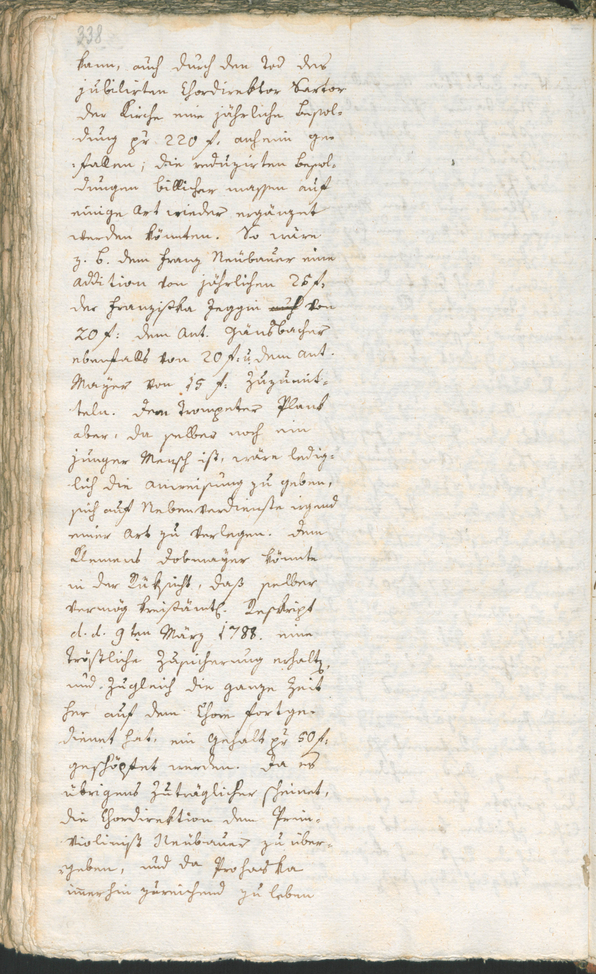 338.
kann, auch durch den Tod des
jubilirten Chordirektor Sartor
der Kirche eine jährliche Besol-
dung pr. 220 f. anheim ge-
fallen; die reduzirten Besol-
dungen billicher massen auf
einige Art wieder ergänzet
werden könnten. So wäre
z. B. dem Franz Neubauer eine
Addition von jährlichen 25 f:
der Franziska Zeggin auch von
20 f: dem Ant. Gänsbacher
ebenfalls von 20 f. u. dem Ant.
Mayer von 15 f: zuzumit-
teln. Dem Trompeter Plank
aber, da selber noch ein
junger Mensch ist, wäre ledig-
lich die Anweisung zu geben,
sich auf Nebenverdienste irgend
einer Art zu verlegen. Dem
Klemens Dobmayer könnte
in der Rüksicht, daß selber
vermög kreisämtl. Reskript
d. d. 9ten März 1788. eine
tröstliche Zusicherung erhalt,
und zugleich die ganze Zeit
her auf dem Chore fortge-
dienet hat, ein Gehalt pr 50 f.
geschöpfet werden. Da es
übrigens zuträglicher scheinet,
die Chordirektion dem Prim-
violinist Neubauer zu über-
geben, und da Prohaska
immerhin zureichend zu leben